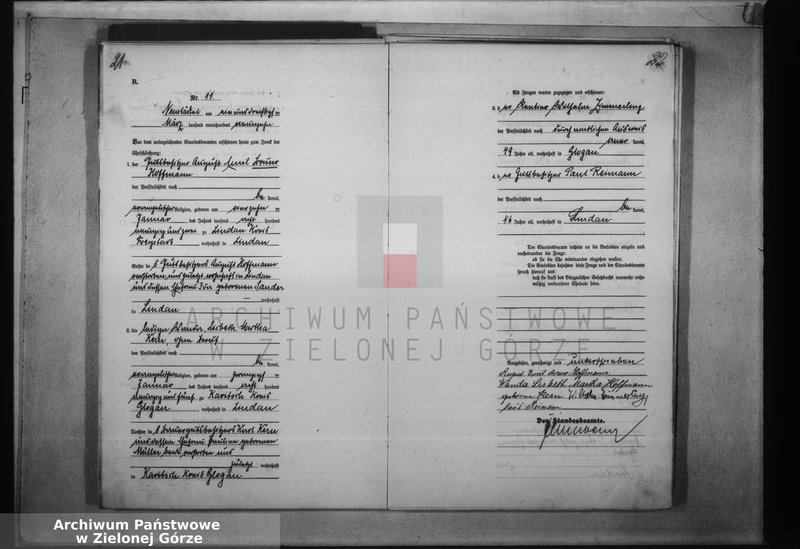 21
B.
Nr. 11
Neustädtel am einunddreißigst=
März tausend neunhundert neunzehn
Vor dem unterzeichneten Standesbeamten erschienen heute zum Zweck der
Eheschließung:
1. der Gutsbesitzer August Emil Bruno
Hoffmann
der Persönlichkeit nach
be kannt,
evangelischer Religion, geboren am vierzehn=
Januar des Jahres tausend acht hundert
neunzig und zwei zu Lindau Kreis
Freystadt wohnhaft in Lindau
Sohn des Gutsbesitzers August Hoffmann
verstorben und zuletzt wohnhaft in Lindau
und dessen Ehefrau geborenen Sander
wohnhaft
in Lindau
2. die Wanda Lisbeth Martha
Kern, ohne Beruf
der Persönlichkeit nach
be kannt,
evangelischer Religion, geboren am
Januar des Jahres tausend acht hundert
neunzig und fünf zu Kreis
Glogau wohnhaft in Lindau
Tochter des Kern
und dessen Ehefrau Pauline geborenen
Müller beide verstorben und
zuletzt wohnhaft
in Kreis Glogau
22
Als Zeugen waren zugezogen und erschienen:
3. der Rentier Wilhelm
der Persönlichkeit nach durch amtlichen Ausweis
kannt,
49 Jahre alt, wohnhaft in Glogau
4. der Gutsbesitzer Paul Reimann
der Persönlichkeit nach be kannt,
46 Jahre alt, wohnhaft in Lindau
Der Standesbeamte richtete an die Verlobten einzeln und
nacheinander die Frage:
ob sie die Ehe miteinander eingehen wollen.
Die Verlobten bejahten diese Frage und der Standesbeamte
sprach hierauf aus:
daß sie kraft des Bürgerlichen Gesetzbuchs nunmehr recht-
mäßig verbundene Eheleute seien.
Vorgelesen, genehmigt und unterschrieben
August Emil Bruno Hoffmann
Wanda Lisbeth Martha Hoffmann
geborene Kern
Paul Reimann
Der Standesbeamte.
ARCHIWUM PAŃSTWOWE
W ZIELONEJ GÓRZE
Archiwum Państwowe
w Zielonej Górze